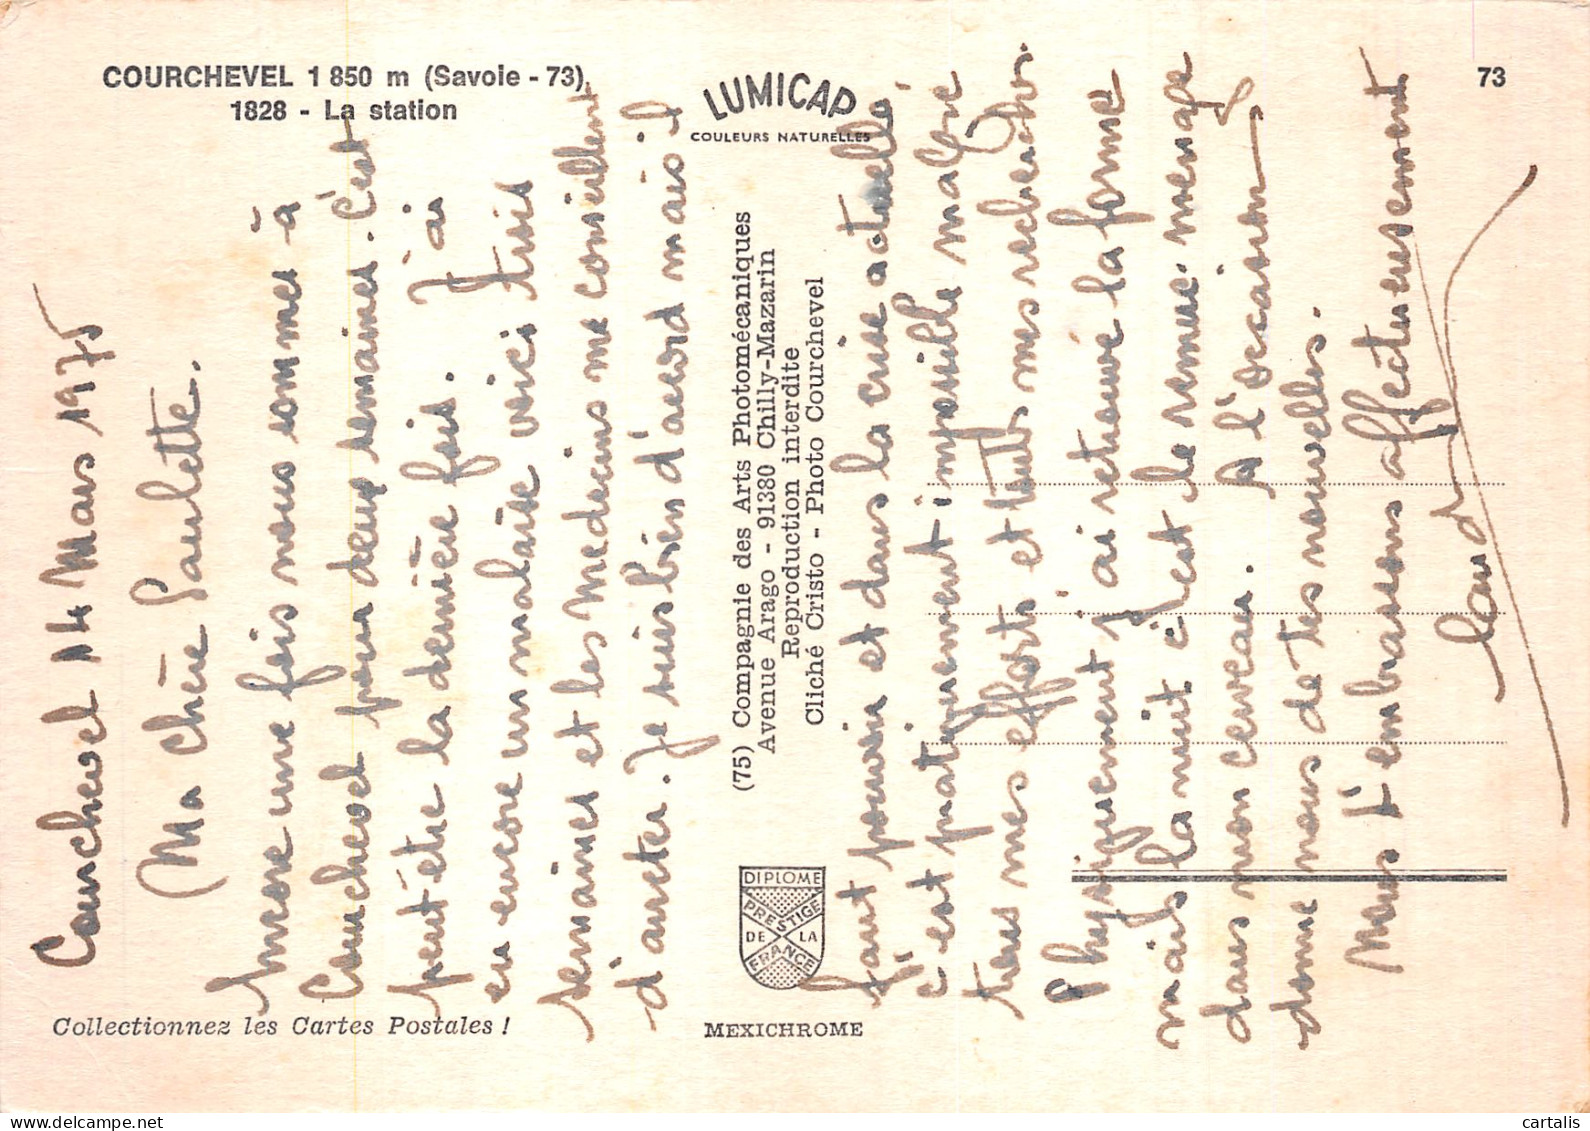 COURCHEVEL 1 850 m (Savoie - 73)
1828 - La station
LUMICAP
COULEURS NATURELLES
73
Courchevel 14 Mars 1975
Ma chère Paulette.
Encore une fois nous sommes à
Courchevel pour deux semaines. C'est
peut être la dernière fois. J'ai
eu encore un malaise voici trois
semaines et les Medecins me conseillent
d'arreter. Je suis bien d'accord mais il
faut pouvoir et dans la crise actuelle
c'est pratiquement impossible malgré
tous mes efforts et toutes mes recherches.
Physiquement j'ai retrouvé la forme
mais la nuit c'est le remue-menage
dans mon cerveau. A l'occasion
donne nous de tes nouvelles.
Nous t'embrassons affectueusement
(75) Compagnie des Arts Photomécaniques
Avenue Arago - 91380 Chilly-Mazarin
Reproduction interdite
Cliché Cristo - Photo Courchevel
DIPLOME
PRESTIGE
DE LA
FRANCE
Collectionnez les Cartes Postales !
MEXICHROME
© cartalis
delcampe.net
cartalis